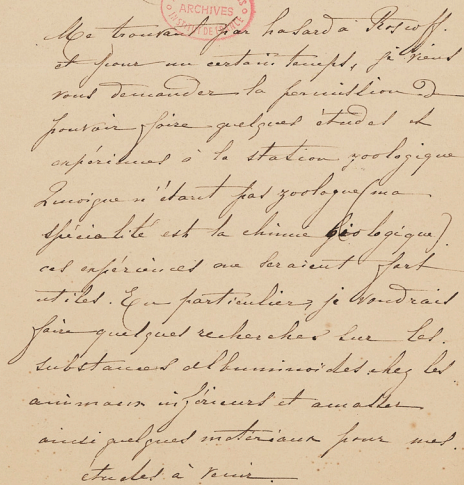 ARCHIVES
Me trouvant par hasard à Roscoff.
et pour un certain temps, je viens
vous demander la permission de
pouvoir faire quelques études et
expériences à la station zoologique
Quoique n'étant pas zoologue (ma
spécialité est la chimie biologique)
ces expériences me seraient fort
utiles. En particulier, je voudrais
faire quelques recherches sur les.
substances albuminoïdes chez les
animaux inférieurs et amasser
ainsi quelques matériaux pour mes.
études à venir.